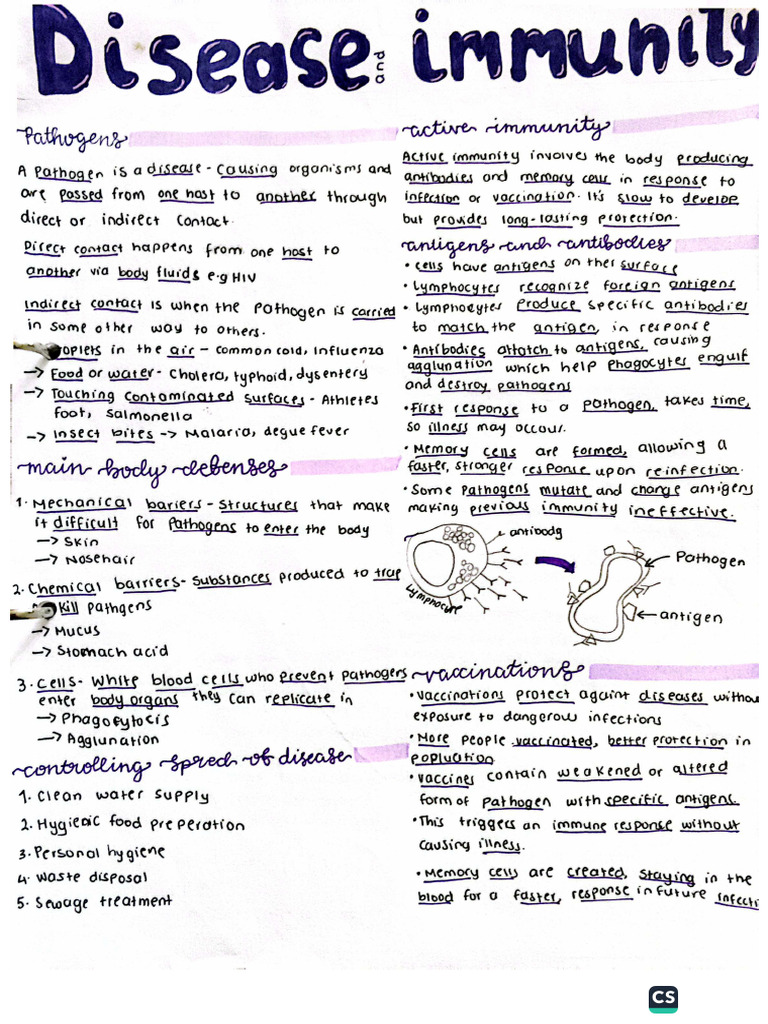 Disease and immunity
Pathogens
A Pathogen is a disease - causing organisms and
are passed from one host to another through
direct or indirect contact.
Direct contact happens from one host to
another via body fluids e.g HIV
Indirect contact is when the pathogen is carried
in some other way to others.
oplets in the air - common cold, Influenza
→ Food or water - Cholera, typhoid, dysentery
→ Touching contaminated surfaces - Athletes
foot, Salmonella
→ Insect bites → Malaria, degue fever
main body defenses
1. Mechanical bariers - Structures that make
it difficult for Pathogens to enter the body
→ Skin
→ Nosehair
2. Chemical barriers - substances produced to trap
kill Pathgens
→ Mucus
→ Stomach acid
3. Cells - White blood cells who prevent pathogens
enter body organs they can replicate in
→ Phagocytocis
→ Agglunation
controlling spred of disease
1. Clean water supply
2. Hygienic food preperation
3. Personal hygiene
4. Waste disposal
5. Sewage treatment
active immunity
Active immunity involves the body producing
antibodies and memory cells in response to
infection or vaccination. It's slow to develop
but provides long-lasting protection.
antigens and antibodies
• Cells have antigens on ther surface
• Lymphocytes recognize foreign antigens
• Lymphocytes produce specific antibodies
to match the antigen, in response
• Antibodies attatch to antigens, causing
agglunation which help phagocytes engulf
and destroy pathogens
• First response to a pathogen, takes time,
so illness may occur.
• Memory cells are formed, allowing a
faster, stronger response upon reinfection.
• Some pathogens mutate and change antigens
making previous immunity ineffective.
antibody
Lymphocyte
Pathogen
antigen
vaccinations
• Vaccinations protect againt diseases withou
exposure to dangerou infections
• More people vaccinated, better protection in
popluation
• Vaccines contain weakened or altered
form of pathogen with specific antigens.
• This triggers an immune response without
causing illness.
• Memory cells are created, staying in the
blood for a faster, response in future infecti
CS